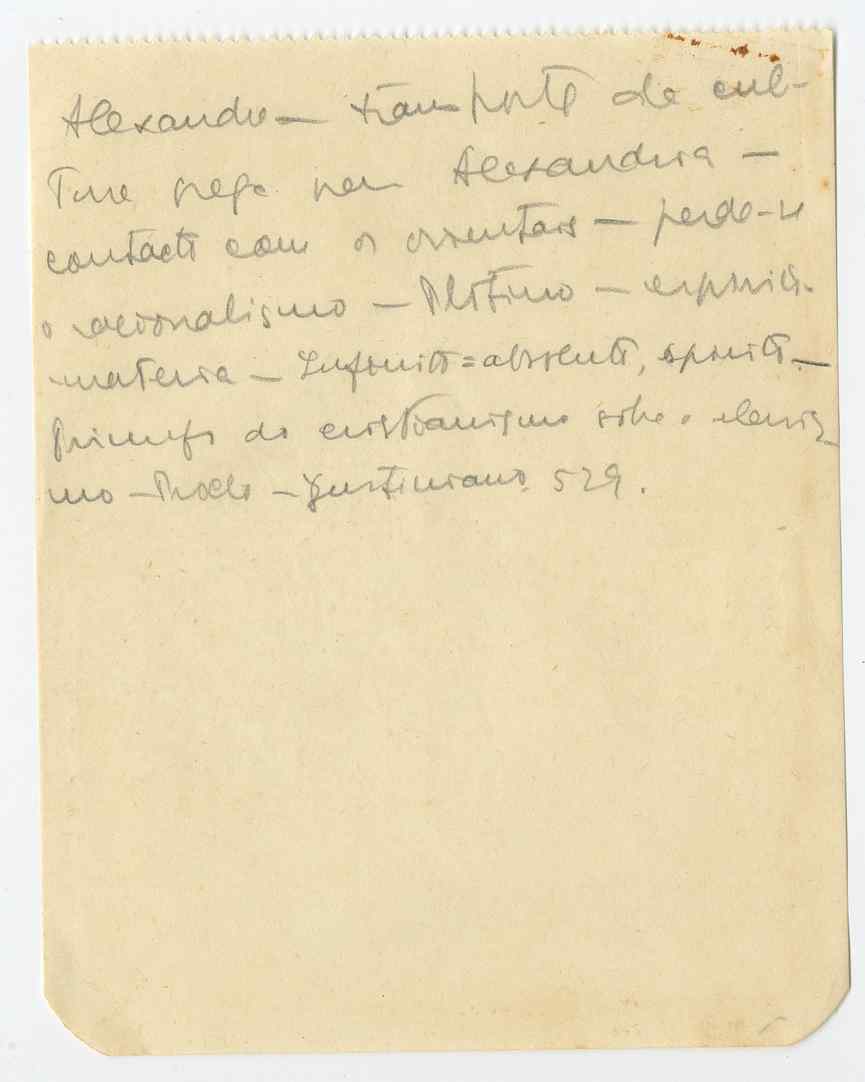 Alexandre — transporte da cul-
tura grega para Alexandria —
contacto com os orientais — perde-se
o racionalismo — Plotino — espírito-
-materia — Infinito = absoluto, espírito —
Triumfo do cristianismo sobre o elenis-
mo — Proclo — Justiniano 529.